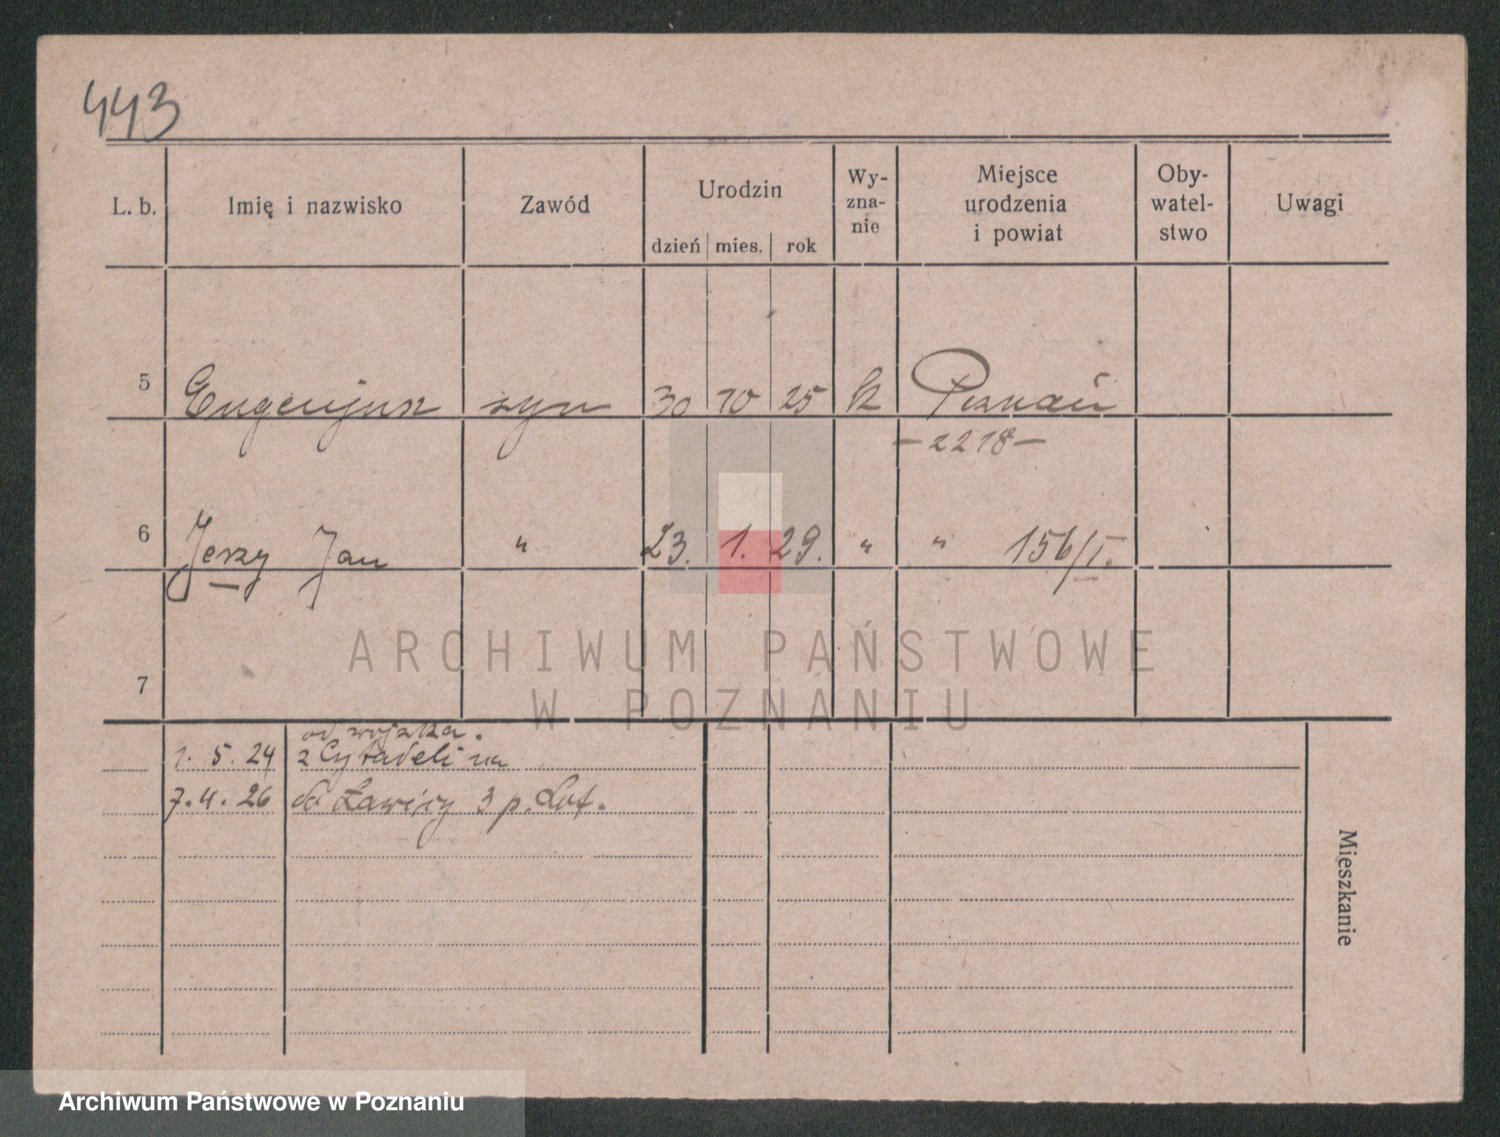 443
L. b. Imię i nazwisko Zawód Urodzin dzień mies. rok Wy-zna-nie Miejsce urodzenia i powiat Oby-watel-stwo Uwagi
5 Eugenjusz syn 30 10 25 k Poznań
—2218—
6 Jerzy Jan " 23. 1. 29. " " 156/I.
7
ARCHIWUM PAŃSTWOWE
W POZNANIU
od wojska.
1. 5. 24 z Cytadeli
7. 4. 26 do Ławicy 3 p. Lot.
Mieszkanie
Archiwum Państwowe w Poznaniu